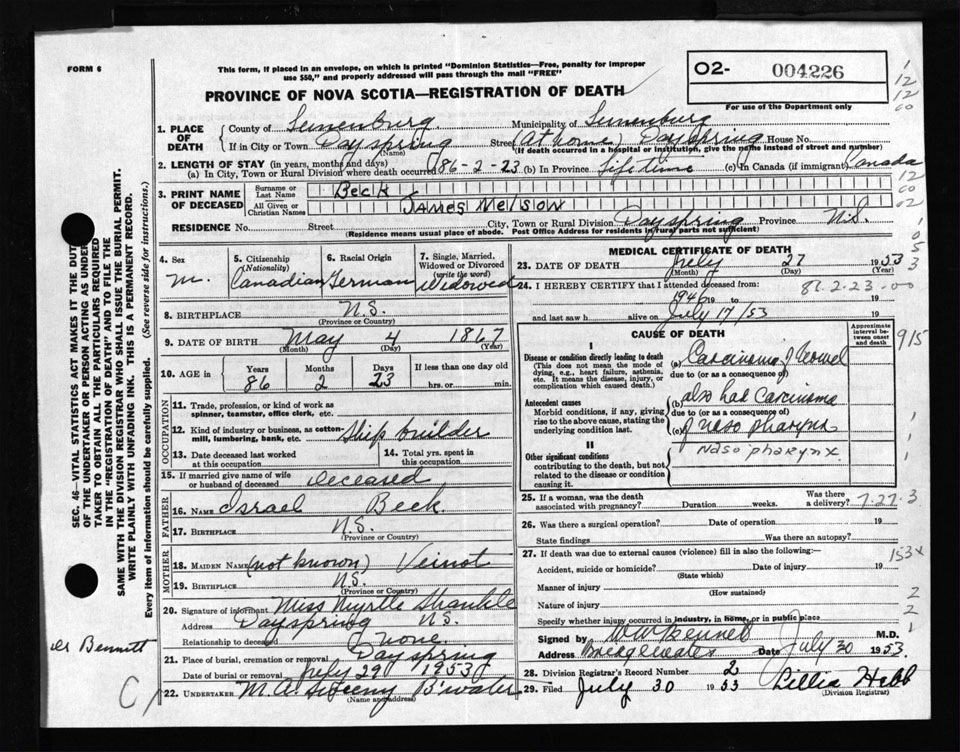 FORM 6
This form, if placed in an envelope, on which is printed "Dominion Statistics—Free, penalty for improper
use $50," and properly addressed will pass through the mail "FREE"
PROVINCE OF NOVA SCOTIA—REGISTRATION OF DEATH
O2- 004226
For use of the Department only
1. PLACE OF DEATH
County of Lunenburg Municipality of Lunenburg
If in City or Town Dayspring (Name) Street (At home) Dayspring House No.
(If death occurred in a hospital or institution, give the name instead of street and number)
2. LENGTH OF STAY (in years, months and days)
(a) In City, Town or Rural Division where death occurred 86-2-23 (b) In Province Life time (c) In Canada (if immigrant) Canada
3. PRINT NAME OF DECEASED
Surname or Last Name Beck
All Given or Christian Names JAMES MELSON
RESIDENCE No. Street City, Town or Rural Division Dayspring Province N.S.
(Residence means usual place of abode. Post Office Address for residents in rural parts not sufficient)
4. Sex M.
5. Citizenship (Nationality) Canadian
6. Racial Origin German
7. Single, Married, Widowed or Divorced (write the word) Widowed
8. BIRTHPLACE N.S.
(Province or Country)
9. DATE OF BIRTH May 4 1867
(Month) (Day) (Year)
10. AGE in Years 86 Months 2 Days 23 If less than one day old
hrs. or min.
OCCUPATION
11. Trade, profession, or kind of work as spinner, teamster, office clerk, etc.
12. Kind of industry or business, as cotton-mill, lumbering, bank, etc. Ship builder
13. Date deceased last worked at this occupation
14. Total yrs. spent in this occupation
15. If married give name of wife or husband of deceased Deceased
FATHER
16. NAME Israel Beck
17. BIRTHPLACE N.S.
(Province or Country)
MOTHER
18. MAIDEN NAME (not known) Veinot
19. BIRTHPLACE N.S.
(Province or Country)
20. Signature of informant Miss Myrtle Shankle
Address Dayspring N.S.
Relationship to deceased none.
21. Place of burial, cremation or removal Dayspring
Date of burial or removal July 29 1953
22. UNDERTAKER M. A. Sweeny B'water
(Name and address)
MEDICAL CERTIFICATE OF DEATH
23. DATE OF DEATH July 27 1953
(Month) (Day) (Year)
24. I HEREBY CERTIFY that I attended deceased from:
1946 19 to 19
and last saw h alive on July 17/53 19
CAUSE OF DEATH
Approximate interval between onset and death
I
Disease or condition directly leading to death
(This does not mean the mode of dying, e.g., heart failure, asthenia, etc. It means the disease, injury, or complication which caused death.)
(a) Carcinoma of bowel
due to (or as a consequence of)
Antecedent causes
Morbid conditions, if any, giving rise to the above cause, stating the underlying condition last.
(b) also had Carcinoma
due to (or as a consequence of)
(c) of naso pharynx
II
Other significant conditions
contributing to the death, but not related to the disease or condition causing it.
Naso pharynx.
25. If a woman, was the death associated with pregnancy? Duration weeks. Was there a delivery? 7-27-3
26. Was there a surgical operation? Date of operation 19
State findings Was there an autopsy?
27. If death was due to external causes (violence) fill in also the following:—
Accident, suicide or homicide? Date of injury 19
(State which)
Manner of injury
(How sustained)
Nature of injury
Specify whether injury occurred in industry, in home, or in public place
Signed by W W Bennett M.D.
Address Bridgewater Date July 30 1953.
28. Division Registrar's Record Number 2
29. Filed July 30 1953 Lillia Hebb
(Division Registrar)
SEC. 46—VITAL STATISTICS ACT MAKES IT THE DUTY
OF THE UNDERTAKER OR PERSON ACTING AS UNDER-
TAKER TO OBTAIN ALL THE PARTICULARS REQUIRED
IN THE "REGISTRATION OF DEATH" AND TO FILE THE
SAME WITH THE DIVISION REGISTRAR WHO SHALL ISSUE THE BURIAL PERMIT.
WRITE PLAINLY WITH UNFADING INK. THIS IS A PERMANENT RECORD.
Every item of information should be carefully supplied. (See reverse side for instructions.)
Bennett
1
12
12
00
12
00
02
1
0
5
3
915
1
1
153x
2
2
1